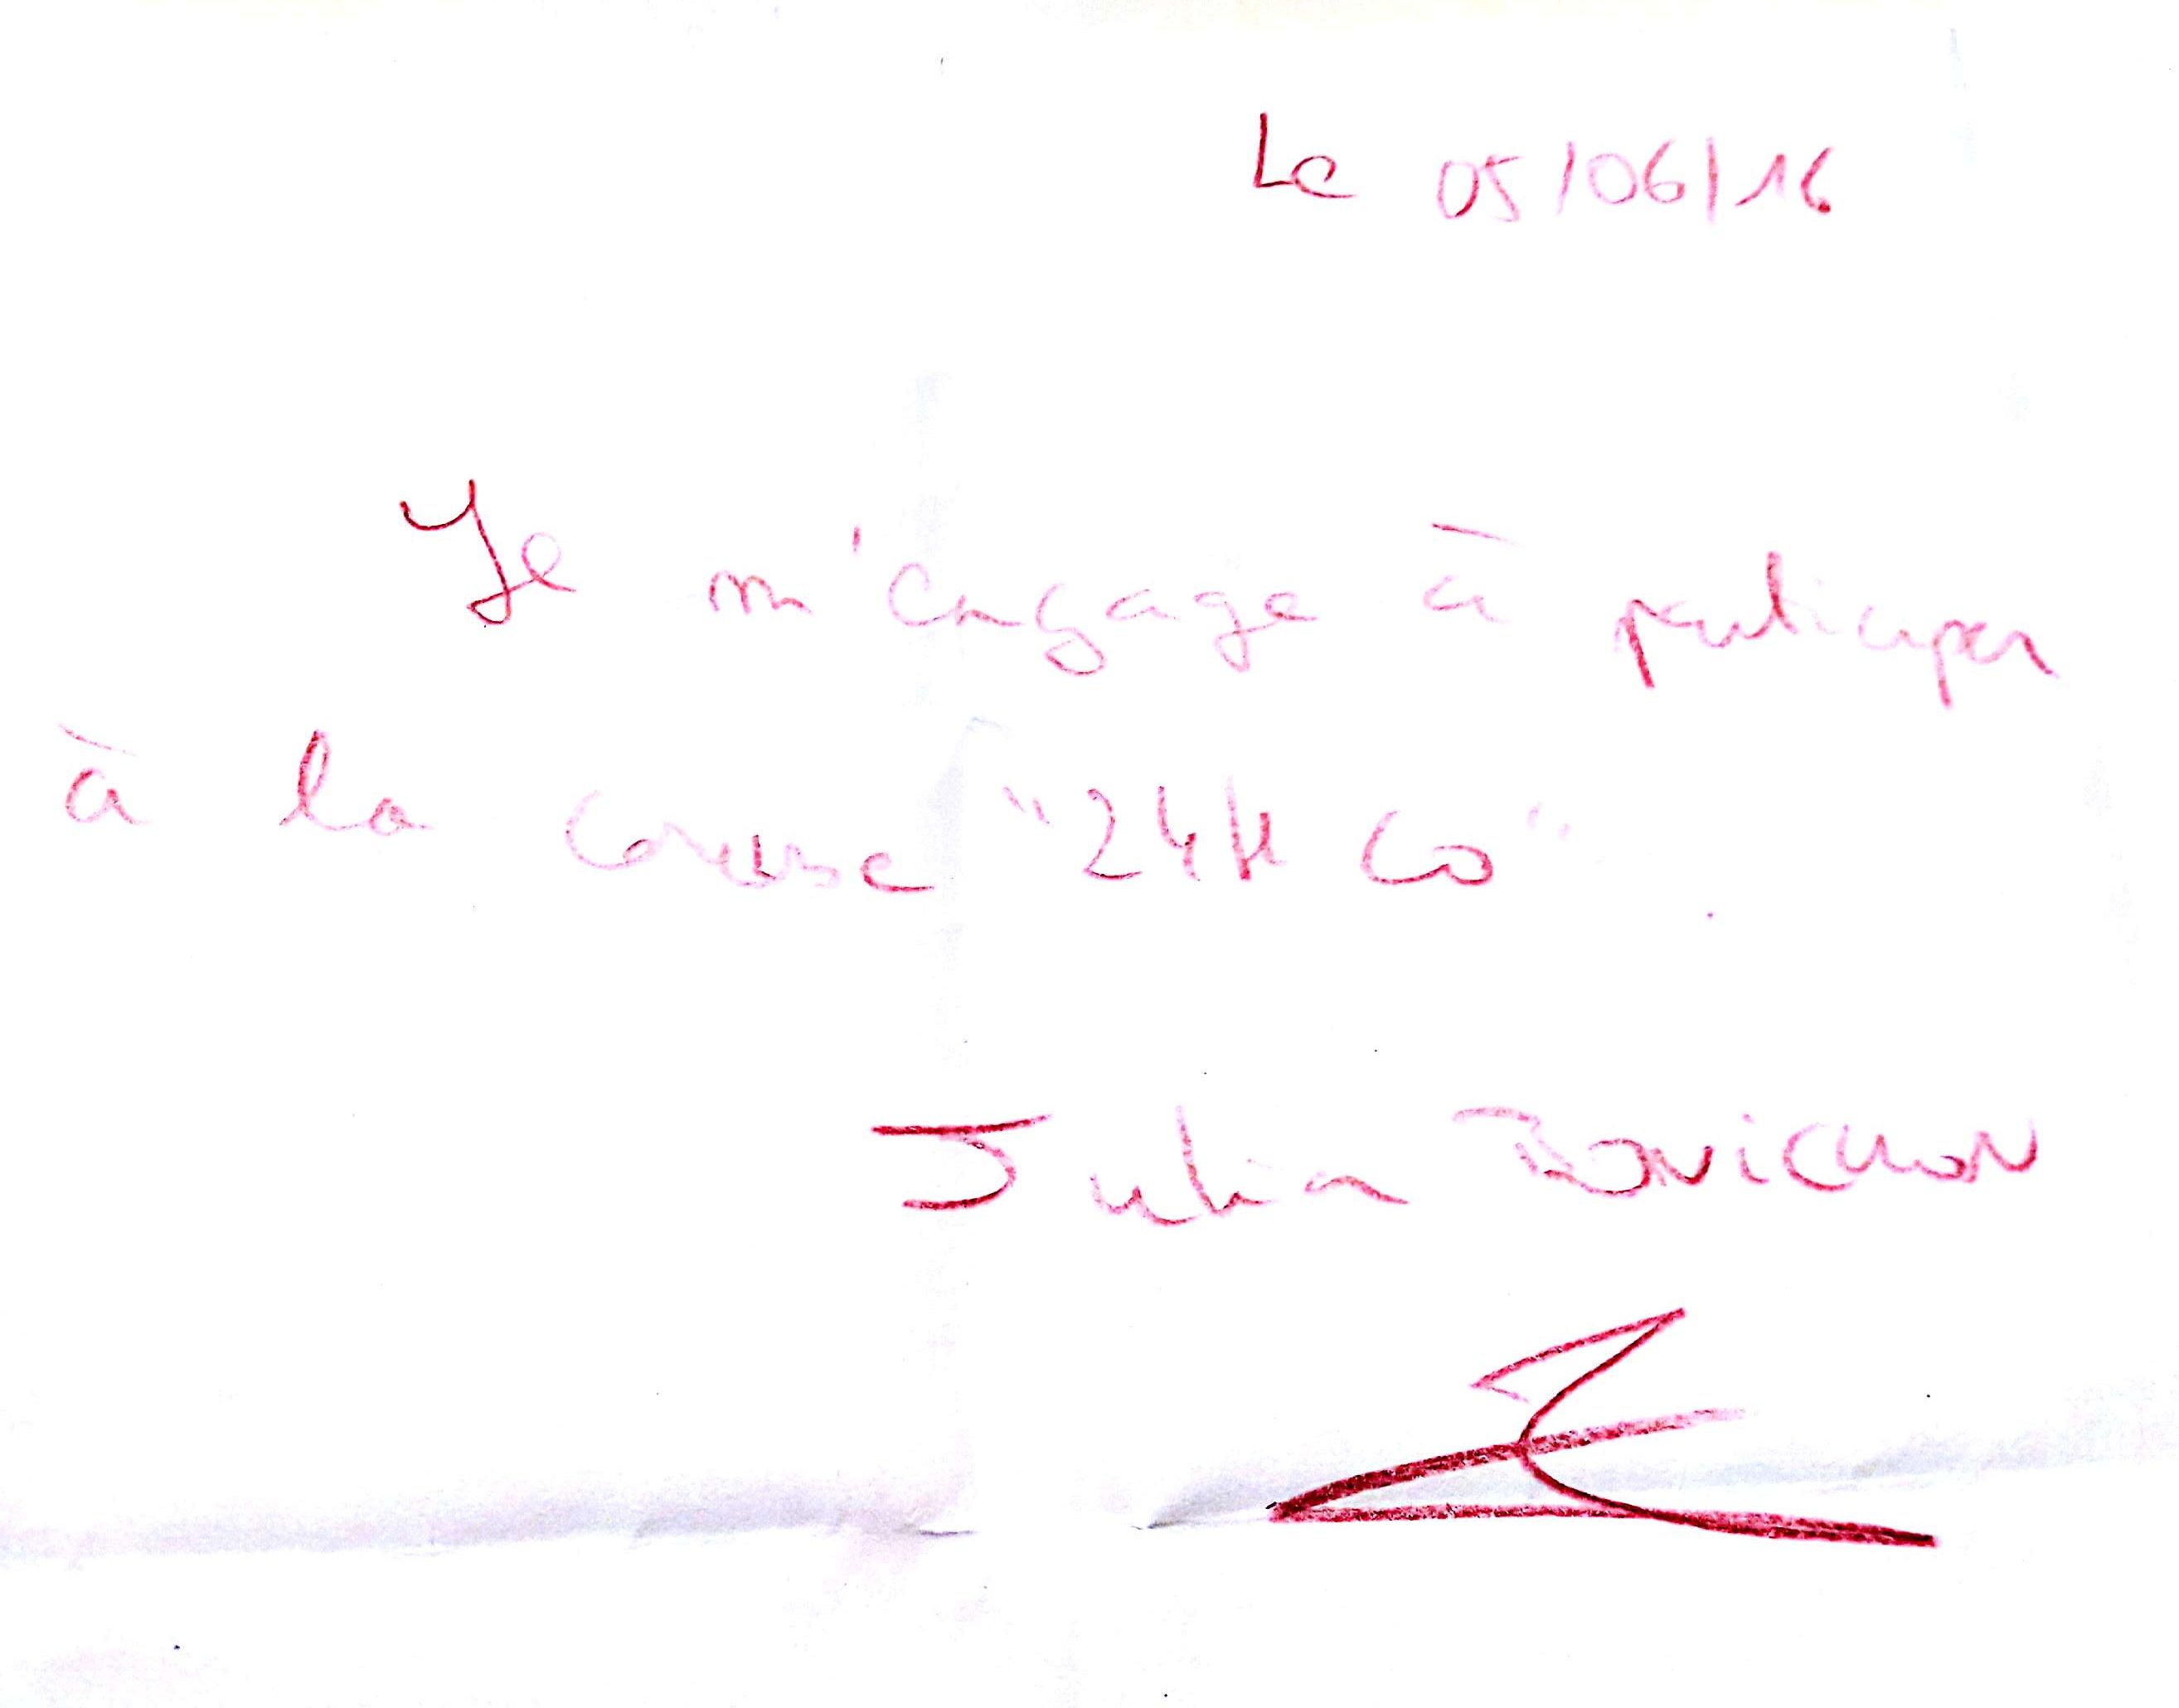 Le 05/06/16
Je m'engage à participer
à la course "24H CO"
Julian